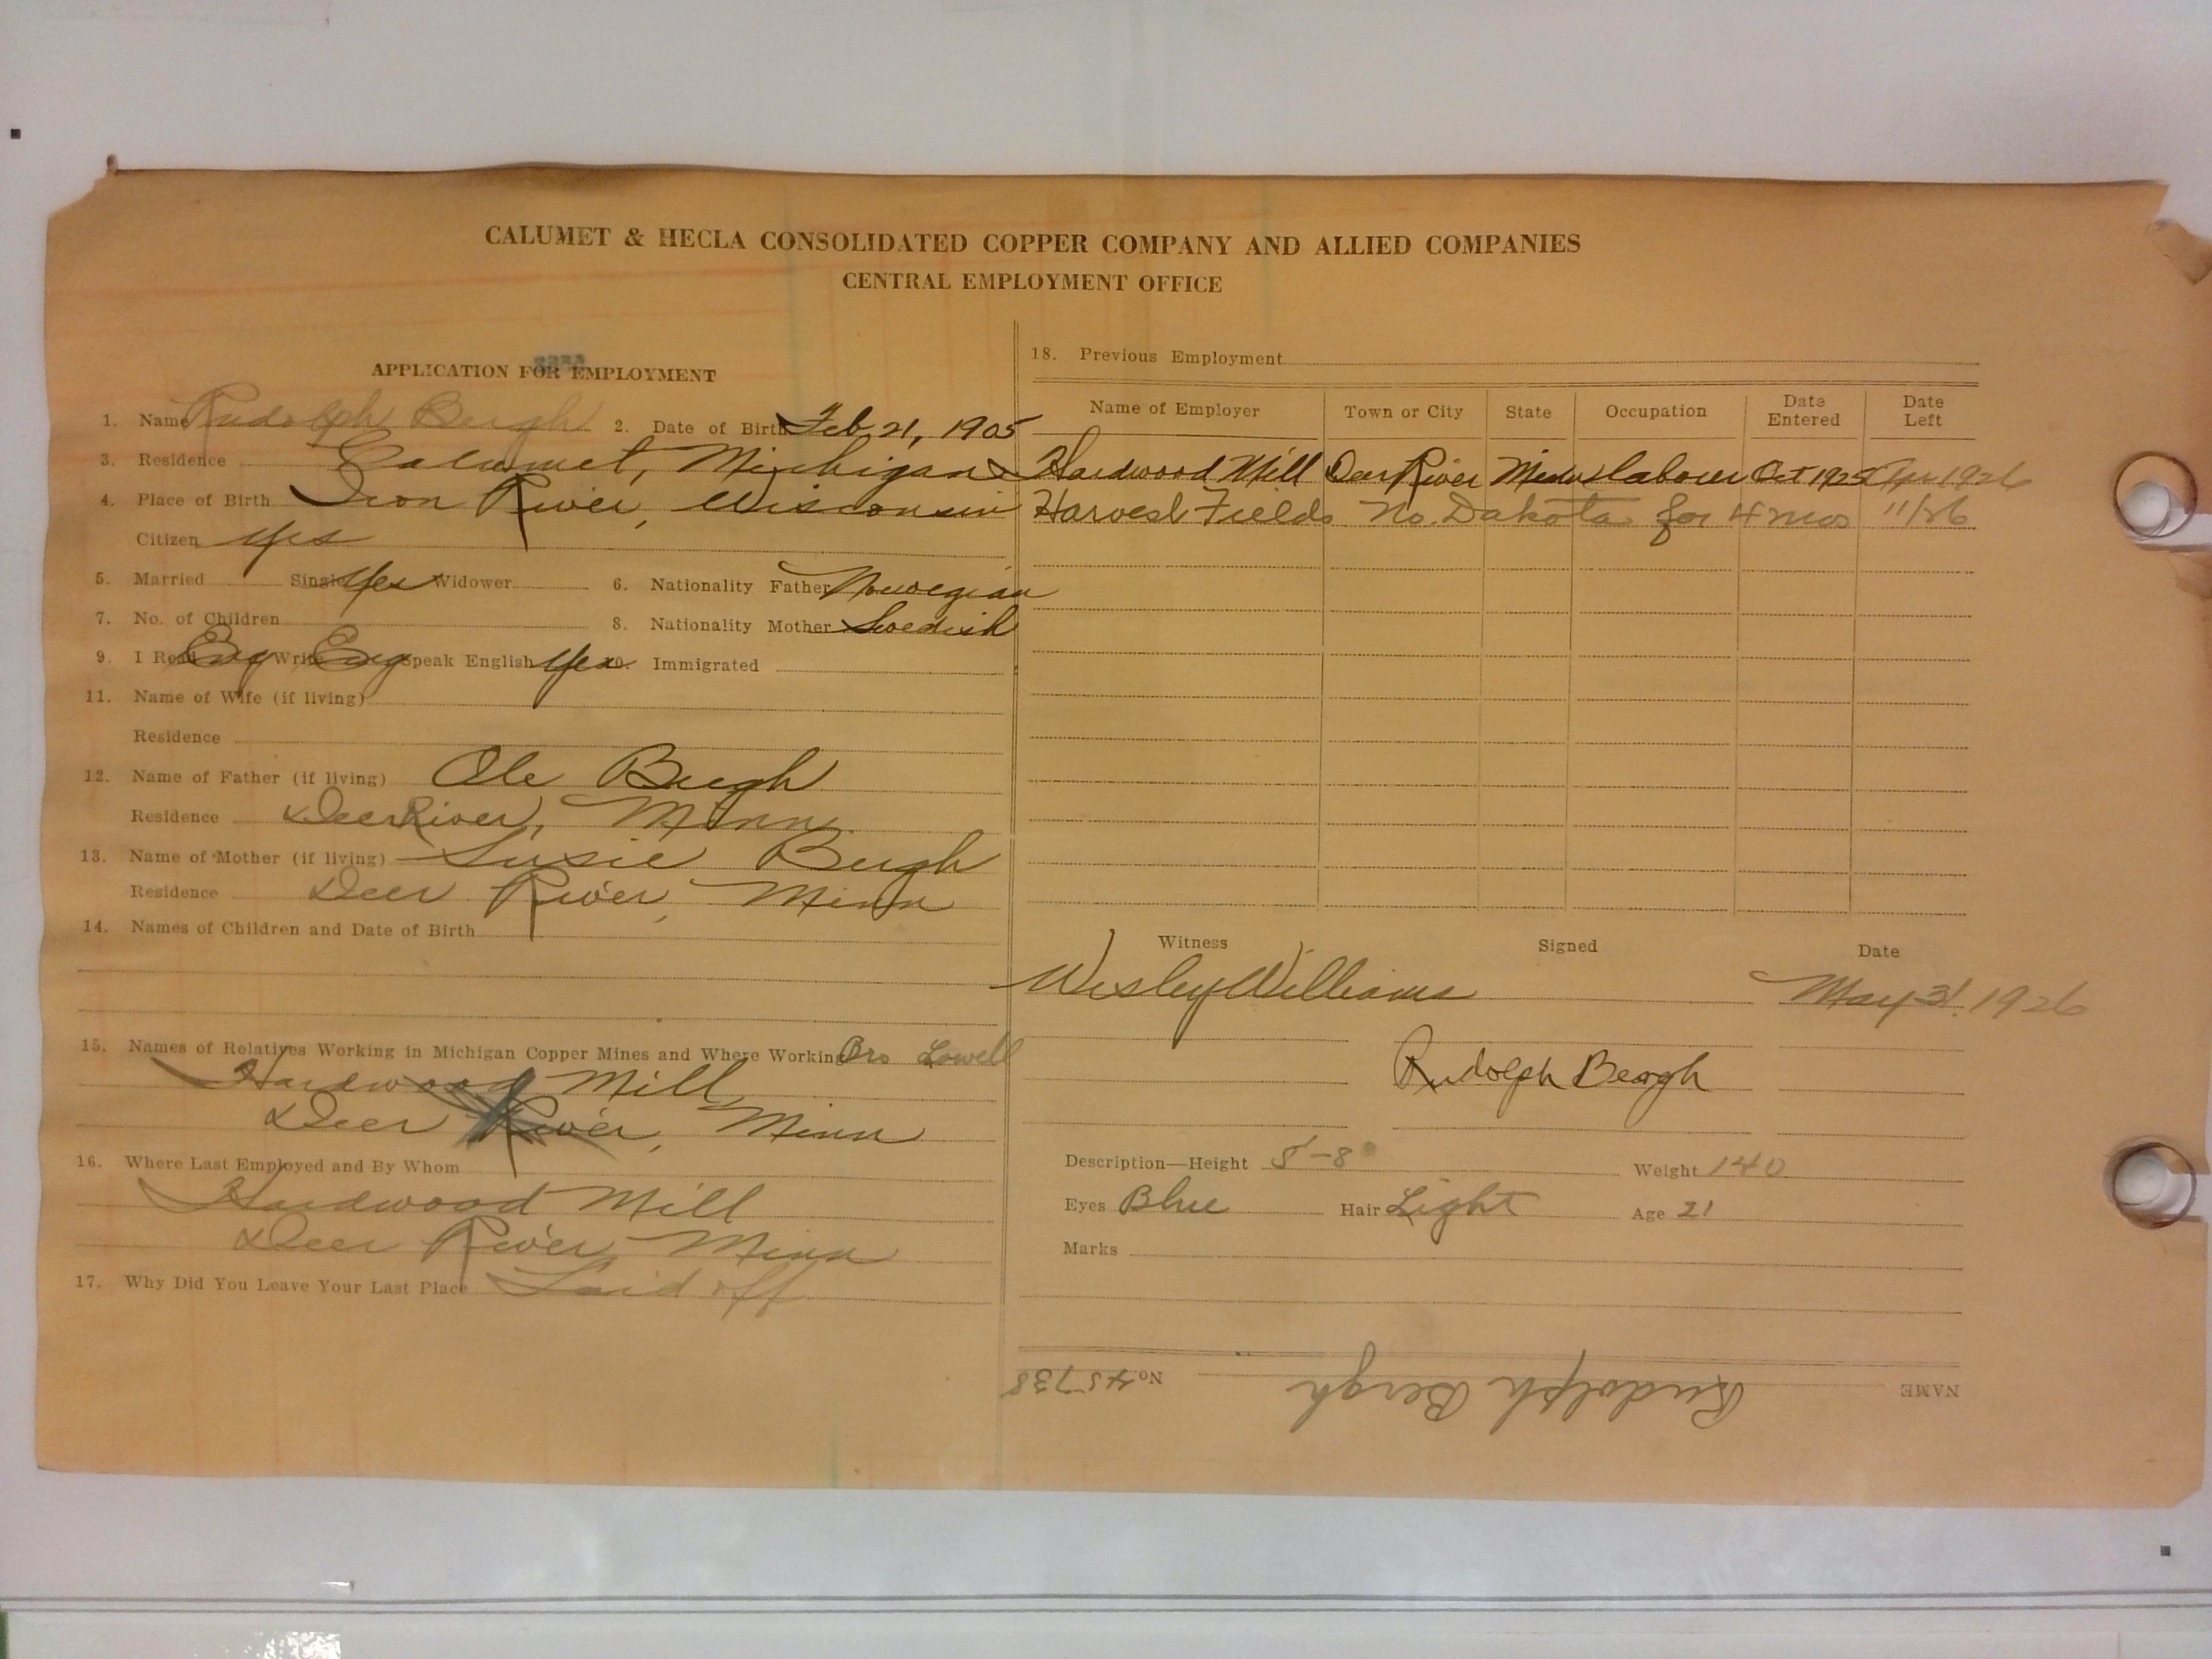 CALUMET & HECLA CONSOLIDATED COPPER COMPANY AND ALLIED COMPANIES
CENTRAL EMPLOYMENT OFFICE
APPLICATION FOR EMPLOYMENT
1. Name Rudolph Bergh 2. Date of Birth Feb 21, 1905
3. Residence Calumet, Michigan
4. Place of Birth Iron River, Wisconsin
Citizen yes
5. Married Single Yes Widower 6. Nationality Father Norwegian
7. No. of Children 8. Nationality Mother Swedish
9. I Read Eng Write Eng Speak English Yes 10. Immigrated
11. Name of Wife (if living)
Residence
12. Name of Father (if living) Ole Bergh
Residence Deer River, Minn.
13. Name of Mother (if living) Susie Bergh
Residence Deer River, Minn
14. Names of Children and Date of Birth
15. Names of Relatives Working in Michigan Copper Mines and Where Working Bro Lowell
Hardwood Mill
Deer River, Minn
16. Where Last Employed and By Whom
Hardwood Mill
Deer River, Minn
17. Why Did You Leave Your Last Place Laid off
18. Previous Employment
Name of Employer Town or City State Occupation Date Entered Date Left
Hardwood Mill Deer River Minn labourer Oct 1925 Apr 1926
Harvest Fields No. Dakota for 4 mos 11/26
Witness Signed Date
Wesley Williams May 31, 1926
Rudolph Bergh
Description—Height 5-8 Weight 140
Eyes Blue Hair Light Age 21
Marks
NAME Rudolph Bergh No. 45738